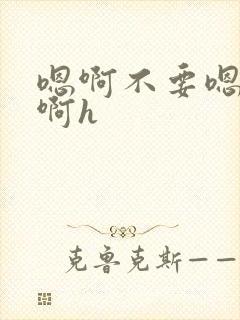 嗯啊不要嗯
啊h
克鲁克斯——